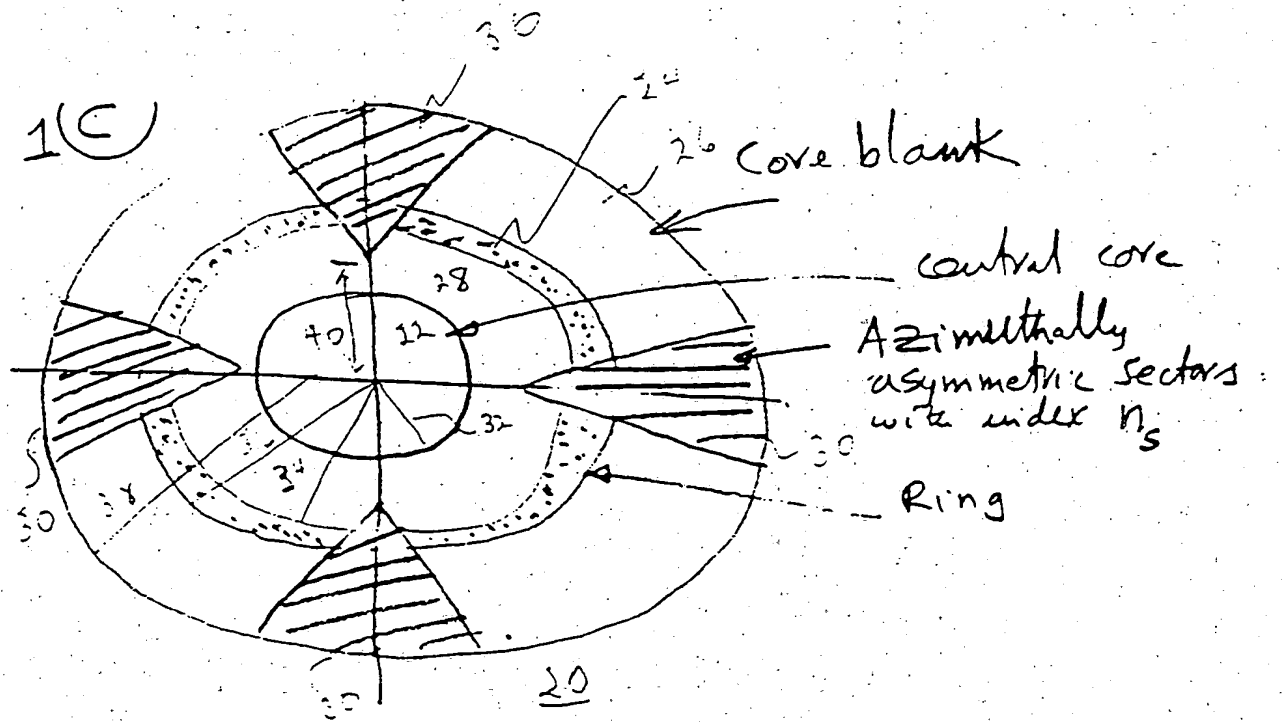 30
1(C)
26 Core blank
central core
28
40 12
Azimuthally
asymmetric sectors
with index ns
32
30
34
38
Ring
30
30
20